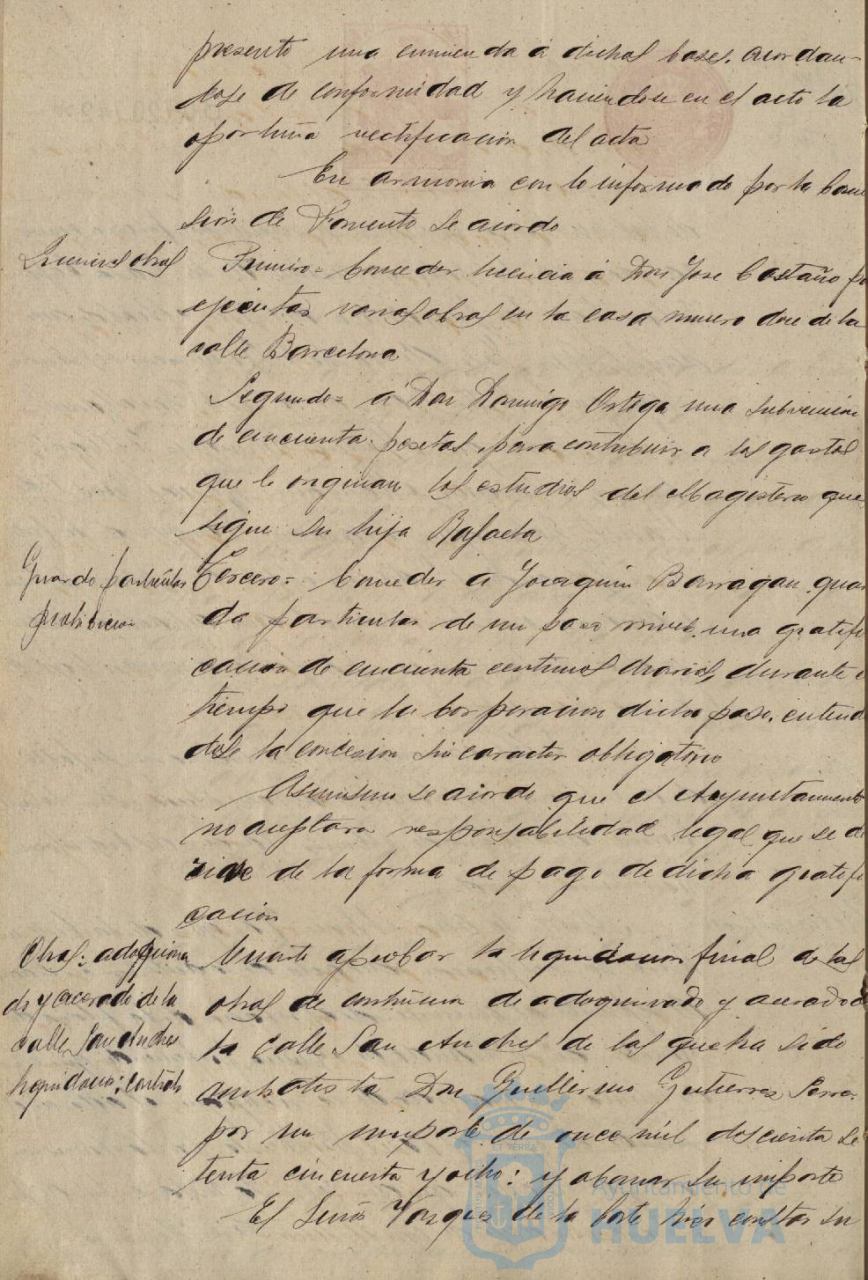 presento una enmienda á dichas bases, acordan-
dose de conformidad y haciendose en el acto la
oportuna rectificacion del acta
En armonia con lo informado por la Comi
sión de Fomento se acordo
Licencias obras
Primero= Conceder licencia á Don Jose Castaño pa
ejecutar varias obras en la casa numero doce de la
calle Barcelona
Segundo= á Don Domingo Ortega una subvencion
de cincuenta pesetas, para contribuir a los gastos
que le originan los estudios del Magisterio que
sigue su hija Rafaela
Guarda particular
gratificacion
Tercero= Conceder a Joaquin Barragan, guar
da particular de una gratifi
cacion de cincuenta centimos diarios, durante e
tiempo que la Corporacion dicha pase, entend
dose la concesion sin caracter obligatorio
Asimismo se acordo que el Ayuntamiento
no aceptara responsabilidad legal, que se de
rive de la forma de pago de dicha gratifi
cacion
Obras: adoquina
do y acerado de la
calle San Andres
liquidacion: contrato
Cuarto aprobar la liquidacion final de las
obras de de adoquinado y acerado d
la calle San Andres de las que ha sido
contratista Don Guillermo Gutierrez Serra
por un importe de once mil doscienta se
tenta cincuenta y ocho: y abonar su importe
El Señor Vazquez de la Corte hizo constar su
Ayuntamiento de
HUELVA